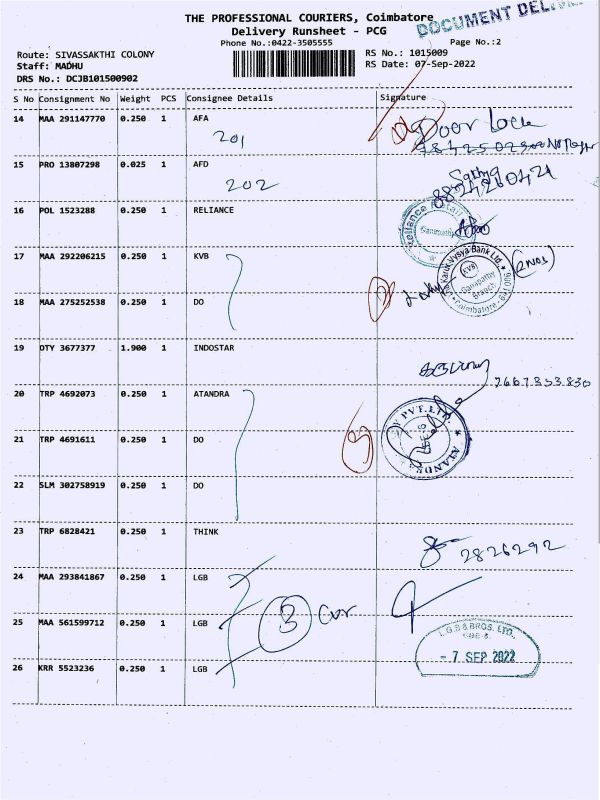 THE PROFESSIONAL COURIERS, Coimbatore
DOCUMENT
Delivery Runsheet - PCG
Phone No.:0422-3505555
Page No.:2
Route: SIVASSAKTHI COLONY
RS No.: 1015009
Staff: MADHU
RS Date: 07-Sep-2022
DRS No.: DCJB101500902
S No Consignment No Weight PCS Consignee Details Signature
14 MAA 291147770 0.250 1 AFA
201
Door Lock
15 PRO 13807298 0.025 1 AFD
202
16 POL 1523288 0.250 1 RELIANCE
Reliance Retail
Ganapathy
17 MAA 292206215 0.250 1 KVB
Karur Vysya Bank Ltd.
KVB
Ganapathy
Branch
Coimbatore
18 MAA 275252538 0.250 1 DO
2
19 OTY 3677377 1.900 1 INDOSTAR
20 TRP 4692073 0.250 1 ATANDRA
PVT. LTD.
ATANDRA
21 TRP 4691611 0.250 1 DO
3
22 SLM 302758919 0.250 1 DO
23 TRP 6828421 0.250 1 THINK
2826292
24 MAA 293841867 0.250 1 LGB
3
25 MAA 561599712 0.250 1 LGB
L.G.B & BROS. LTD.,
- 7 SEP 2022
26 KRR 5523236 0.250 1 LGB